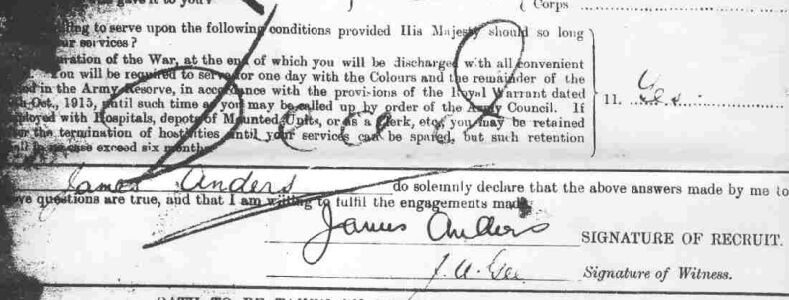 gave it to you?
Corps
ing to serve upon the following conditions provided His Majesty should so long
our services?
uration of the War, at the end of which you will be discharged with all convenient
You will be required to serve for one day with the Colours and the remainder of the
in the Army Reserve, in accordance with the provisions of the Royal Warrant dated
Oct., 1915, until such time as you may be called up by order of the Army Council. If
ployed with Hospitals, depots of Mounted Units, or as a Clerk, etc., you may be retained
the termination of hostilities until your services can be spared, but such retention
in no case exceed six months
11. Yes
James Anders do solemnly declare that the above answers made by me to
ve questions are true, and that I am willing to fulfil the engagements made.
James Anders SIGNATURE OF RECRUIT.
Signature of Witness.